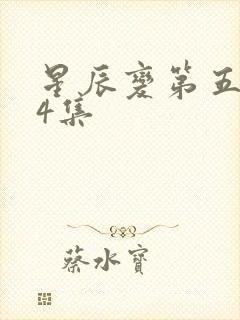 星辰变第五
4集
蔡水寳